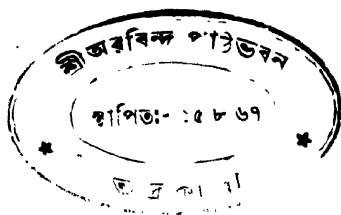 শ্রীঅরবিন্দ পাঠভবন
স্থাপিত:- :৫ ৮ ৬৭